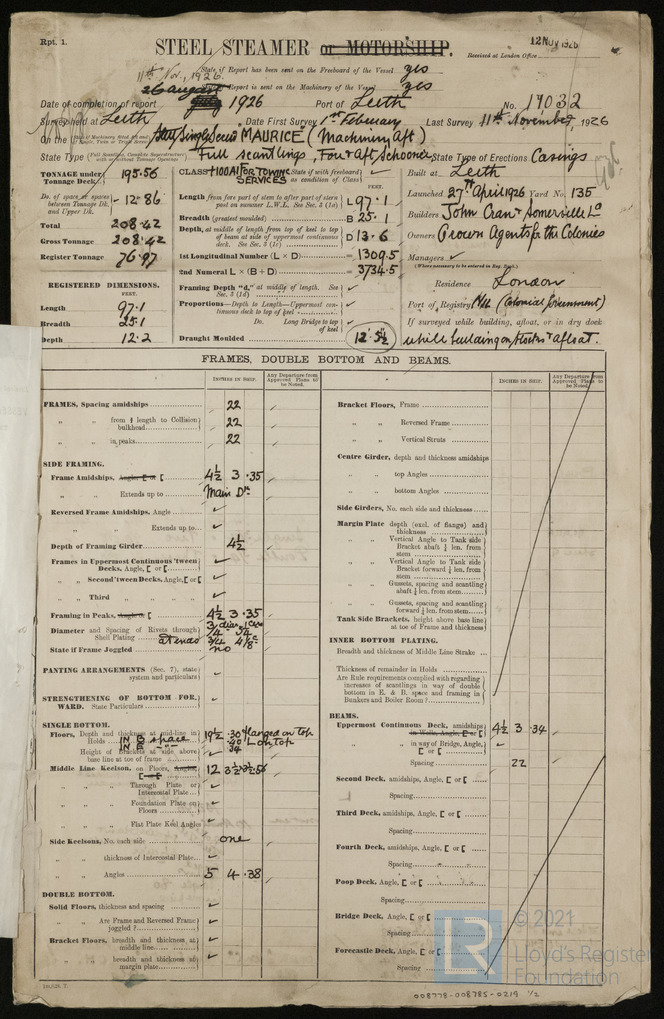 Rpt. 1.
STEEL STEAMER or MOTORSHIP.
12 NOV 1926
Received at London Office
State if Report has been sent on the Freeboard of the Vessel yes
11th Nov., 1926.
Report is sent on the Machinery of the Vessel yes
Date of completion of report 1926 Port of Leith No. 17032
Survey held at Leith Date First Survey 1st February Last Survey 11th November, 1926
On the MAURICE (Machinery Aft)
State Type Full scantlings, Fore & Aft Schooner State Type of Erections Casings
TONNAGE under Tonnage Deck 195.56
Do. of space or spaces between Tonnage Dk. and Upper Dk. 12.86
Total 208.42
Gross Tonnage 208.42
Register Tonnage 76.97
REGISTERED DIMENSIONS.
FEET.
Length 97.1
Breadth 25.1
Depth 12.2
CLASS +100A1 FOR TOWING SERVICES State if with freeboard as condition of Class
FEET.
Length from fore part of stem to after part of stern post on summer L.W.L. See Sec. 3 (1a) L 97.1
Breadth (greatest moulded) B 25.1
Depth, at middle of length from top of keel to top of beam at side of uppermost continuous deck. See Sec. 3 (1c) D 13.6
1st Longitudinal Number (L × D) = 1309.5
2nd Numeral L × (B + D) = 3734.5
Framing Depth "d," at middle of length. See Sec. 3 (1d)
Proportions—Depth to Length—Uppermost continuous deck to top of keel
Do. Long Bridge to top of keel
Draught Moulded 12' 5½
Built at Leith
Launched 27th April 1926 Yard No. 135
Builders John Cran & Somerville Ld
Owners Crown Agents for the Colonies
Managers
(Where necessary to be entered in Reg. Book)
Residence London
Port of Registry Nil (Colonial Government)
If surveyed while building, afloat, or in dry dock
while building on stocks & afloat.
FRAMES, DOUBLE BOTTOM AND BEAMS.
INCHES IN SHIP.
Any Departure from Approved Plans to be Noted.
INCHES IN SHIP.
Any Departure from Approved Plans to be Noted.
FRAMES, Spacing amidships 22
" " from ⅕ length to Collision bulkhead 22
" " in peaks 22
SIDE FRAMING.
Frame Amidships, Angle, [ or [ 4½ 3 .35
" " Extends up to Main Dk
Reversed Frame Amidships, Angle
" " Extends up to
Depth of Framing Girder 4½
Frames in Uppermost Continuous 'tween Decks, Angle, [ or [
" " Second 'tween Decks, Angle, [ or [
" " Third " "
Framing in Peaks, Angle or [ 4½ 3 .35
Diameter and Spacing of Rivets through Shell Plating
State if Frame Joggled no
PANTING ARRANGEMENTS (Sec. 7), state system and particulars
STRENGTHENING OF BOTTOM FORWARD. State Particulars
SINGLE BOTTOM.
Floors, Depth and thickness at mid-line in Holds 19½ .30 flanged on top
IN B space .40 L on top
Height of Brackets at side above base line at toe of frame 34
Middle Line Keelson, on Floors, Angles, [ 12 3½ 3½ .56
" " Through Plate or Intercostal Plate
" " Foundation Plate on Floors
" " Flat Plate Keel Angles
Side Keelsons, No. each side one
" " thickness of Intercostal Plate
" " Angles 5 4 .38
DOUBLE BOTTOM.
Solid Floors, thickness and spacing
" " Are Frame and Reversed Frame joggled?
Bracket Floors, breadth and thickness at middle line
" " breadth and thickness at margin plate
Bracket Floors, Frame
" " Reversed Frame
" " Vertical Struts
Centre Girder, depth and thickness amidships
" " top Angles
" " bottom Angles
Side Girders, No. each side and thickness
Margin Plate depth (excl. of flange) and thickness
" " Vertical Angle to Tank side Bracket abaft ¼ len. from stem
" " Vertical Angle to Tank side Bracket forward ¼ len. from stem
" " Gussets, spacing and scantling abaft ¼ len. from stem
" " Gussets, spacing and scantling forward ¼ len. from stem
Tank Side Brackets, height above base line at toe of Frame and thickness
INNER BOTTOM PLATING.
Breadth and thickness of Middle Line Strake
Thickness of remainder in Holds
Are Rule requirements complied with regarding increases of scantlings in way of double bottom in E. & B. space and framing in Bunkers and Boiler Room?
BEAMS.
Uppermost Continuous Deck, amidships 4½ 3 .34
" " in way of Bridge, Angle, [ or [
Spacing 22
Second Deck, amidships, Angle, [ or [
Spacing
Third Deck, amidships, Angle, [ or [
Spacing
Fourth Deck, amidships, Angle, [ or [
Spacing
Poop Deck, Angle, [ or [
Spacing
Bridge Deck, Angle, [ or [
Spacing
Forecastle Deck, Angle, [ or [
Spacing
LR
© 2021
Lloyd's Register
Foundation
008778-008785-0219 1/2